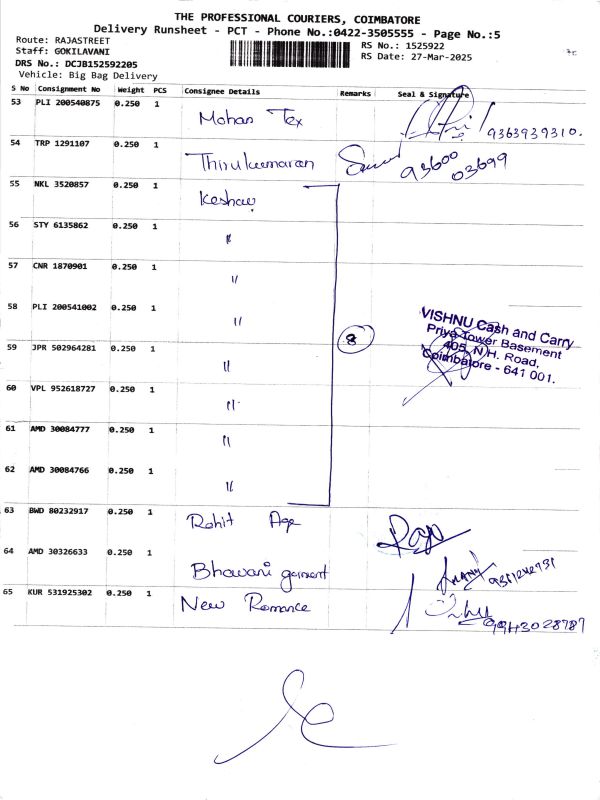 THE PROFESSIONAL COURIERS, COIMBATORE
Delivery Runsheet - PCT - Phone No.:0422-3505555 - Page No.:5
Route: RAJASTREET
Staff: GOKILAVANI
DRS No.: DCJB152592205
Vehicle: Big Bag Delivery
RS No.: 1525922
RS Date: 27-Mar-2025
S No Consignment No Weight PCS Consignee Details Remarks Seal & Signature
53 PLI 200540875 0.250 1 Mohan Tex 9363939310.
54 TRP 1291107 0.250 1 Thirukumaran 93600
03699
55 NKL 3520857 0.250 1 Keshav
56 STY 6135862 0.250 1 "
57 CNR 1870901 0.250 1 "
58 PLI 200541002 0.250 1 "
8
VISHNU Cash and Carry
Priya Tower Basement
405, N.H. Road,
Coimbatore - 641 001.
59 JPR 502964281 0.250 1 "
60 VPL 952618727 0.250 1 "
61 AMD 30084777 0.250 1 "
62 AMD 30084766 0.250 1 "
63 BWD 80232917 0.250 1 Rohit Age
64 AMD 30326633 0.250 1 Bhawani garment
65 KUR 531925302 0.250 1 New Romance 9943028787